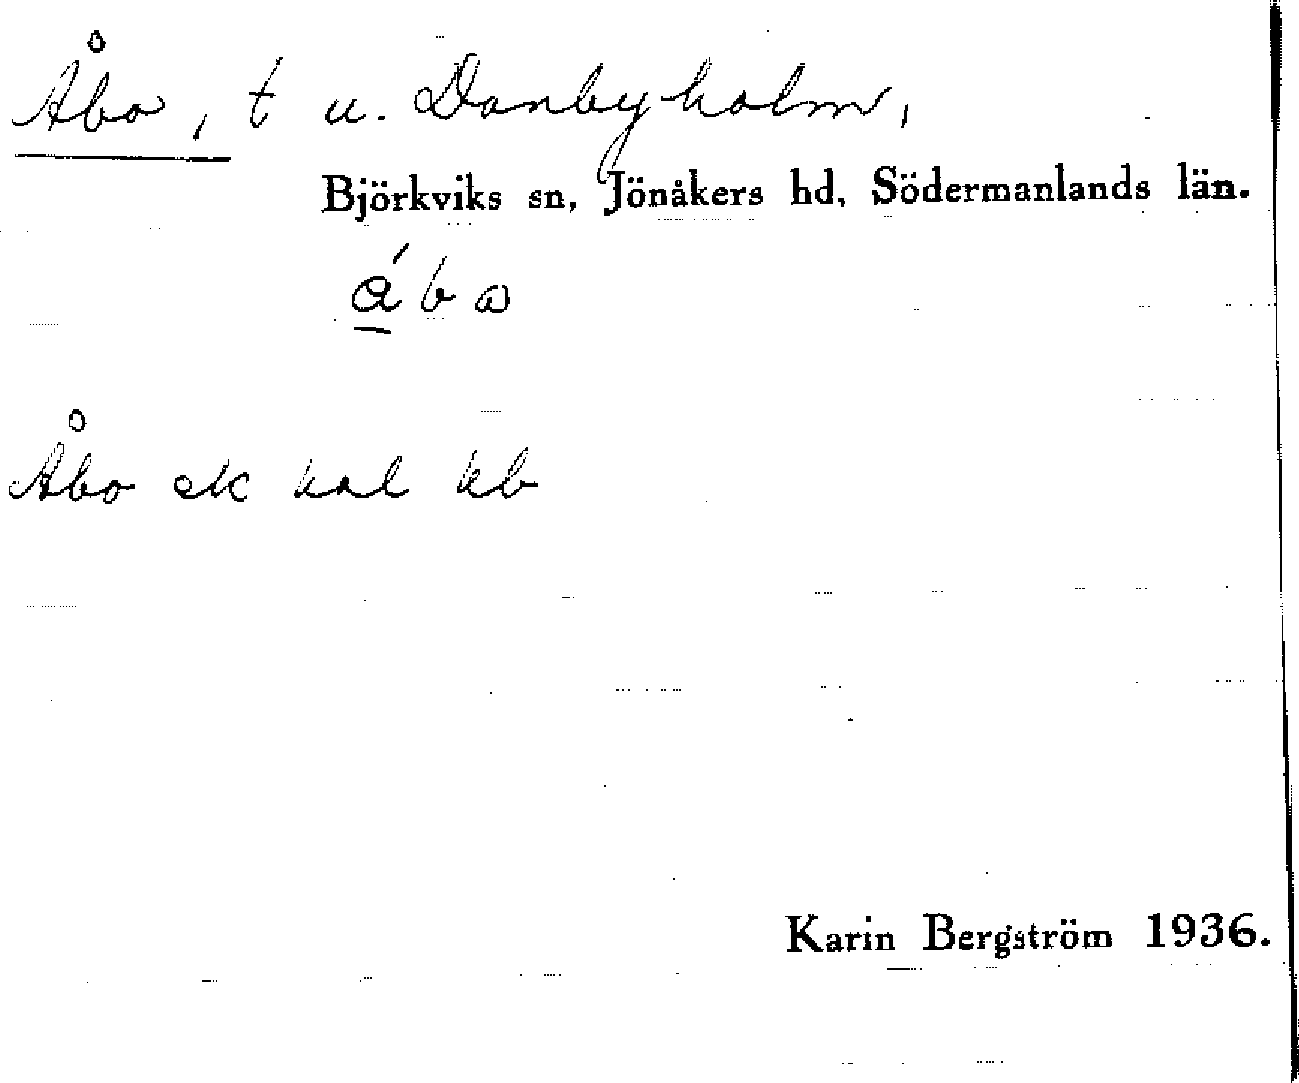 Åbo, t u. Danbyholm,
Björkviks sn, Jönåkers hd, Södermanlands län.
ǻ b ω
Åbo ek kal kb
Karin Bergström 1936.